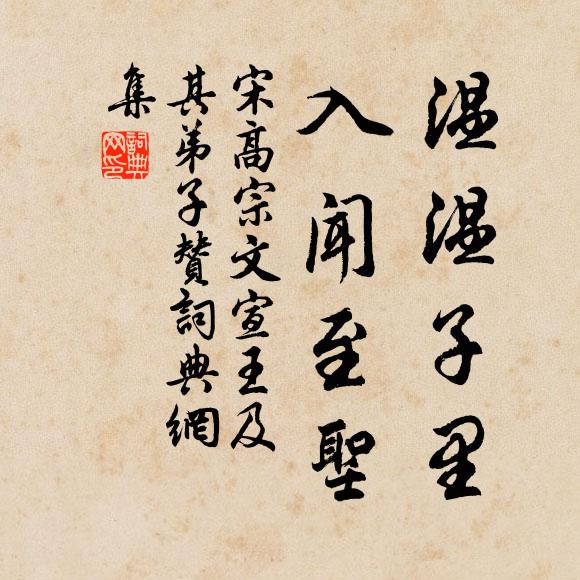 温温子里
入闻至聖
宋高宗文宣王及
其弟子賛詞典網
集
詞典
网印